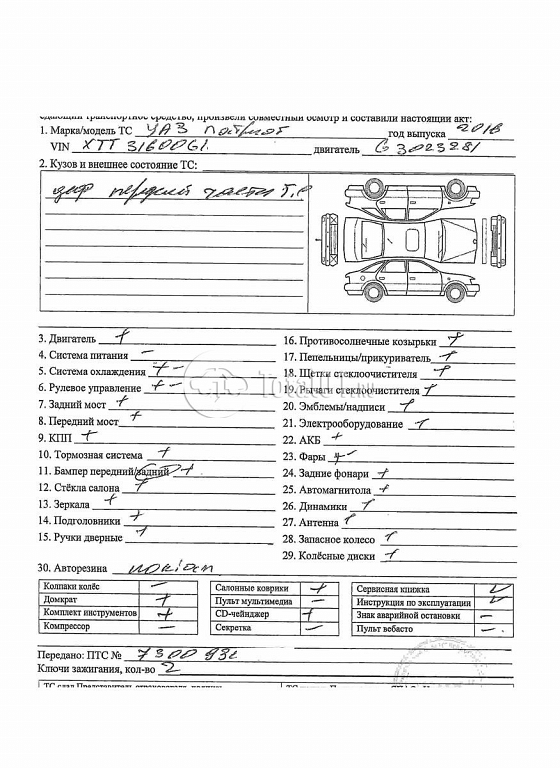 едающий транспортное средство, произвели совместный осмотр и составили настоящий акт:
1. Марка/модель ТС УАЗ Патриот год выпуска 2016
VIN XTT 316006 двигатель G 3023281
2. Кузов и внешнее состояние ТС:
деф передней части Т.С
3. Двигатель +
4. Система питания –
5. Система охлаждения + –
6. Рулевое управление + –
7. Задний мост +
8. Передний мост +
9. КПП +
10. Тормозная система +
11. Бампер передний/задний +
12. Стёкла салона +
13. Зеркала +
14. Подголовники +
15. Ручки дверные +
16. Противосолнечные козырьки +
17. Пепельницы/прикуриватель +
18. Щетки стеклоочистителя +
19. Рычаги стеклоочистителя +
20. Эмблемы/надписи +
21. Электрооборудование +
22. АКБ +
23. Фары + –
24. Задние фонари +
25. Автомагнитола +
26. Динамики +
27. Антенна +
28. Запасное колесо +
29. Колёсные диски +
TotalCar.ru
30. Авторезина nokian
Колпаки колёс –
Домкрат +
Комплект инструментов +
Компрессор –
Салонные коврики +
Пульт мультимедиа –
CD-чейнджер +
Секретка –
Сервисная книжка V
Инструкция по эксплуатации V
Знак аварийной остановки –
Пульт вебасто –
Передано: ПТС № 7300 93
Ключи зажигания, кол-во 2